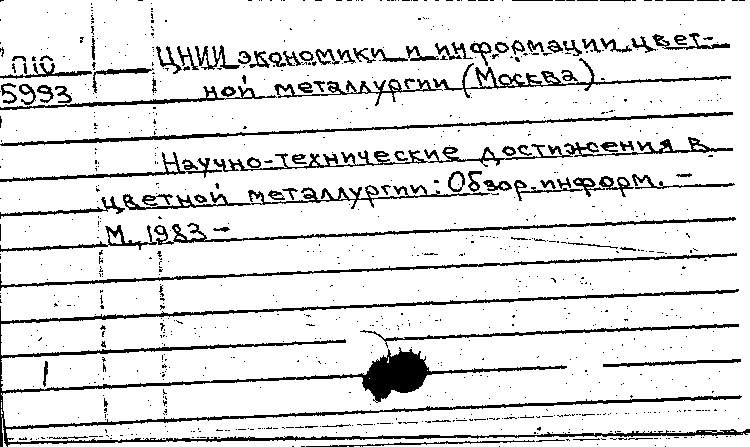 П10 ЦНИИ экономики и информации цвет-
5993 ной металлургии (Москва).
Научно-технические достижения в
цветной металлургии: Обзор. информ. -
М., 1983 -